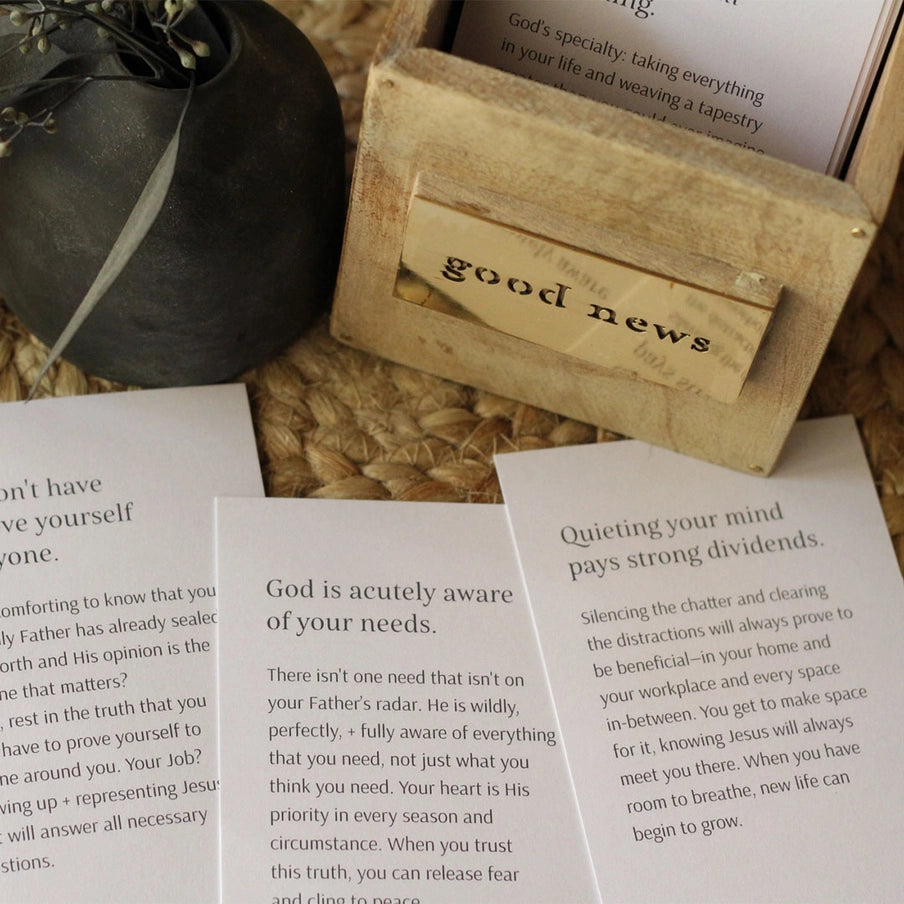 God's specialty: taking everything
in your life and weaving a tapestry
good news
on't have
ve yourself
yone.
omforting to know that you
ly Father has already sealed
orth and His opinion is the
ne that matters?
, rest in the truth that you
have to prove yourself to
ne around you. Your Job?
wing up + representing Jesus
will answer all necessary
stions.
God is acutely aware
of your needs.
There isn't one need that isn't on
your Father's radar. He is wildly,
perfectly, + fully aware of everything
that you need, not just what you
think you need. Your heart is His
priority in every season and
circumstance. When you trust
this truth, you can release fear
and cling to peace
Quieting your mind
pays strong dividends.
Silencing the chatter and clearing
the distractions will always prove to
be beneficial—in your home and
your workplace and every space
in-between. You get to make space
for it, knowing Jesus will always
meet you there. When you have
room to breathe, new life can
begin to grow.